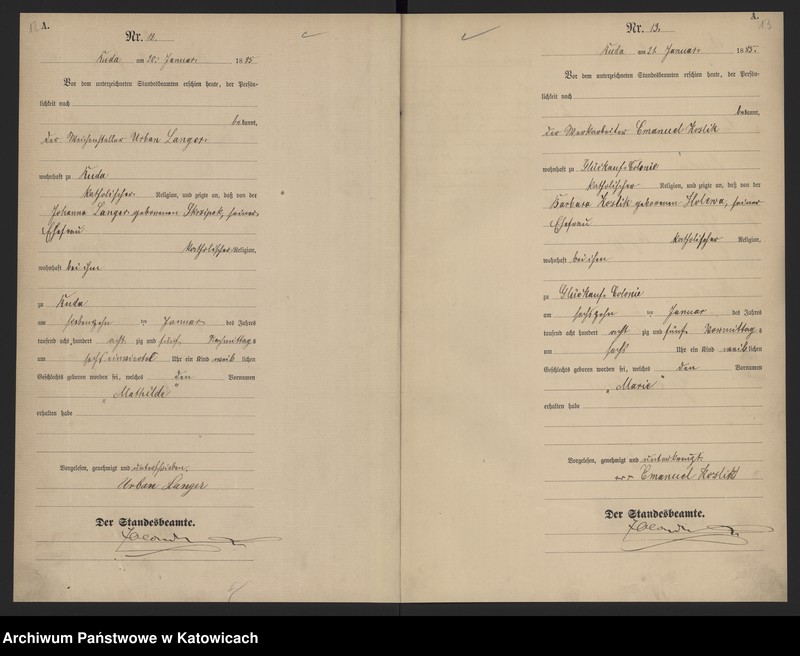 12
A.
Nr. 12.
Ruda am 20. Januar 1885
Vor dem unterzeichneten Standesbeamten erschien heute, der Persön-
lichkeit nach
bekannt,
der Weichensteller Urban Langer
wohnhaft zu Ruda
katholischer Religion, und zeigte an, daß von der
Johanna Langer geborenen Skrzipek, seiner
Ehefrau
katholischer Religion,
wohnhaft bei ihm
zu Ruda
am siebenzehn ten Januar des Jahres
tausend acht hundert acht zig und fünf Nachmittags
um sechs einviertel Uhr ein Kind weiblichen
Geschlechts geboren worden sei, welches den Vornamen
„Mathilde"
erhalten habe
Vorgelesen, genehmigt und unterschrieben.
Urban Langer
Der Standesbeamte.
A.
13
Nr. 13.
Ruda am 21. Januar 1885.
Vor dem unterzeichneten Standesbeamten erschien heute, der Persön-
lichkeit nach
bekannt,
der Werkarbeiter Emanuel Koslik
wohnhaft zu Glückauf-Colonie
katholischer Religion, und zeigte an, daß von der
Barbara Koslik geborenen Holewa, seiner
Ehefrau
katholischer Religion,
wohnhaft bei ihm
zu Glückauf Colonie
am sechszehn ten Januar des Jahres
tausend acht hundert acht zig und fünf Vormittags
um sechs Uhr ein Kind weiblichen
Geschlechts geboren worden sei, welches den Vornamen
„Marie"
erhalten habe
Vorgelesen, genehmigt und unterkreuzt.
+++ Emanuel Koslik
Der Standesbeamte.
Archiwum Państwowe w Katowicach